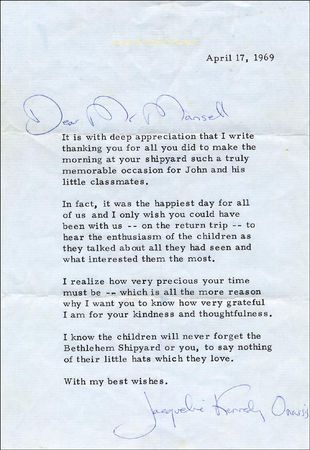 April 17, 1969
Dear Mr Mansell
It is with deep appreciation that I write
thanking you for all you did to make the
morning at your shipyard such a truly
memorable occasion for John and his
little classmates.
In fact, it was the happiest day for all
of us and I only wish you could have
been with us -- on the return trip -- to
hear the enthusiasm of the children as
they talked about all they had seen and
what interested them the most.
I realize how very precious your time
must be -- which is all the more reason
why I want you to know how very grateful
I am for your kindness and thoughtfulness.
I know the children will never forget the
Bethlehem Shipyard or you, to say nothing
of their little hats which they love.
With my best wishes.
Jacqueline Kennedy Onassis